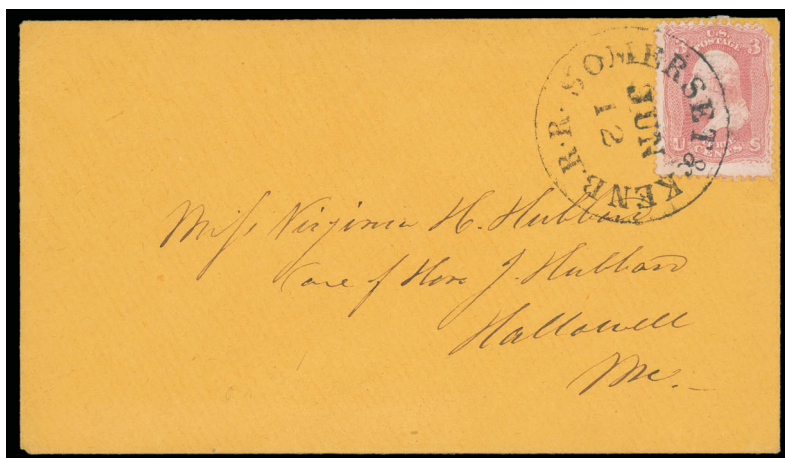 SOMERSET & KENB. R. R.
JUN
12
U.S.
POSTAGE
3 3
U S
CENTS
Miss Virginia H. Hubbard
Care of Hon J. Hubbard
Hallowell
Me.